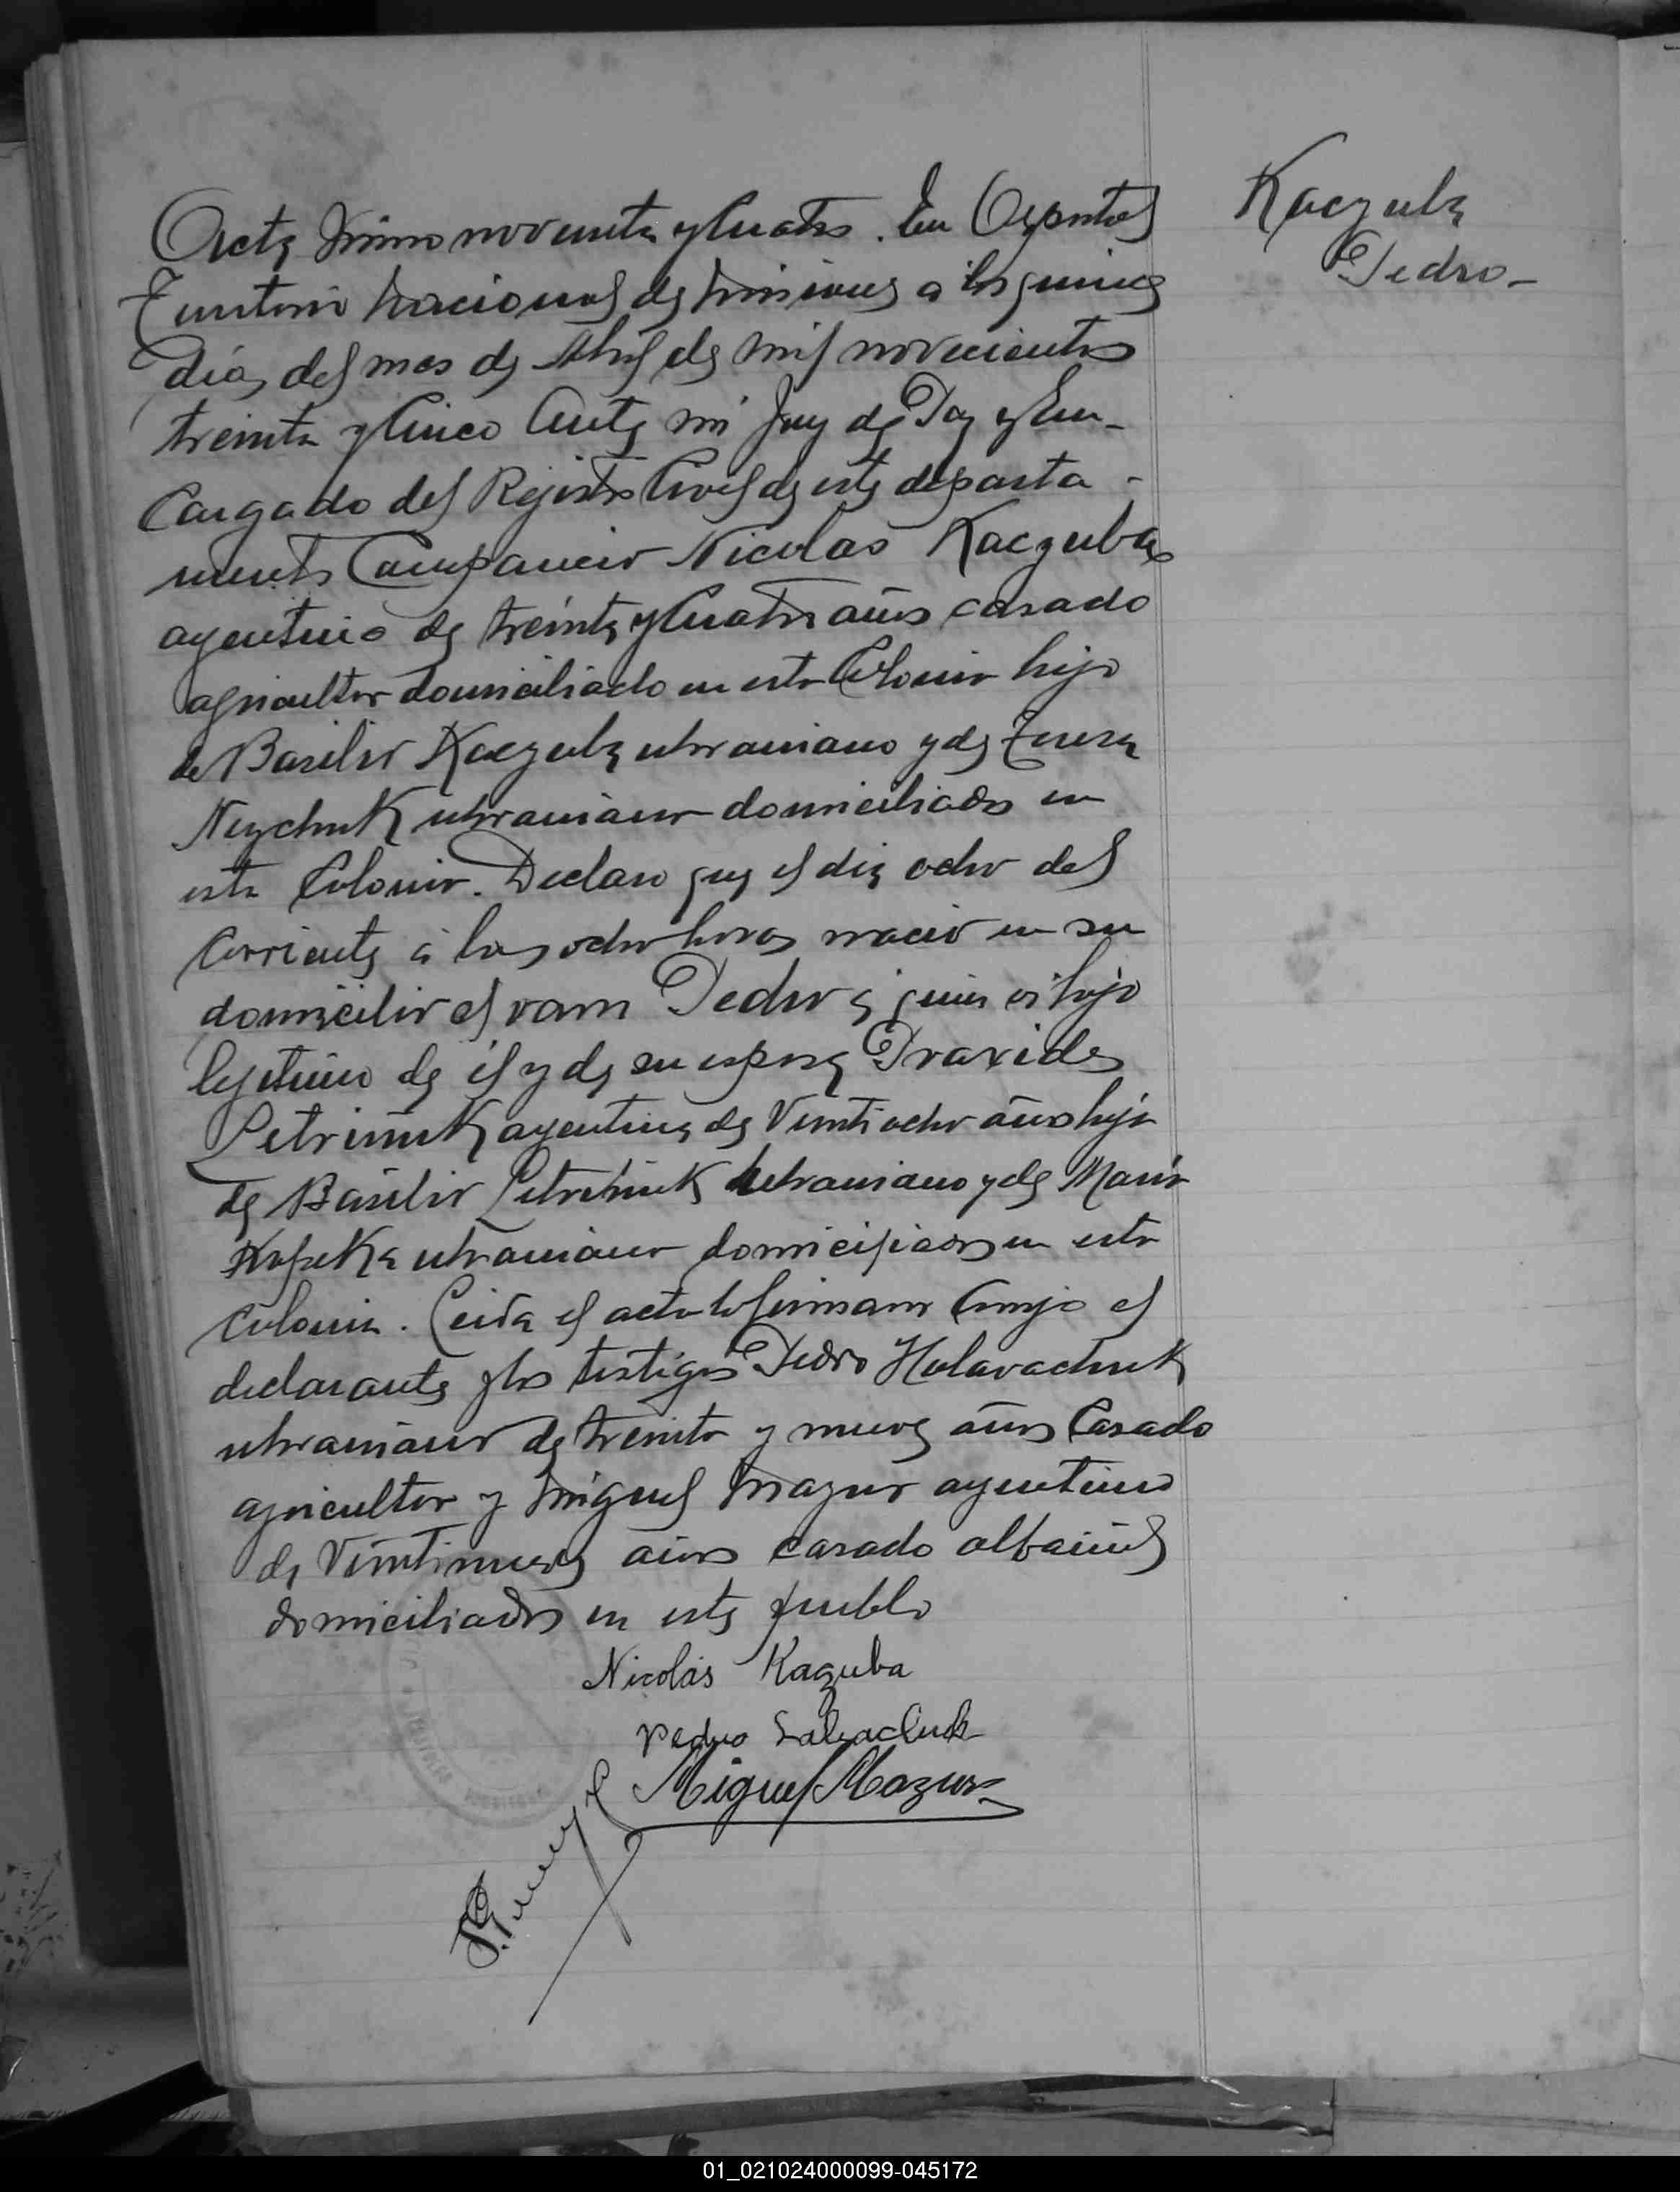 Kaczuba
Pedro-
Acta Numo noventa y Cuatro. En Apostoles
Territorio Nacional de Misiones a los quince
dias del mes de Abril de mil novecientos
treinta y Cinco Ante mi Juez de Paz y En-
Cargado del Rejistro Civil de este departa-
mento Comparecio Nicolas Kaczuba
argentino de treinta y Cuatro años casado
agricultor domiciliado en esta Colonia hijo
de Basilio Kaczuba ukraniano y de Teresa
ukraniana domiciliados en
esta Colonia. Declaro que el dia ocho del
Corriente a las ocho horas nacio en su
domicilio el varon Pedro a quien es hijo
lejitimo de él y de su esposa Praxides
Petriñuk argentina de Veintiocho años hija
de Basilio Petriñuk ukraniano y de Maria
ukraniana domiciliados en esta
Colonia. Leida el acta la firmaron Conmigo el
declarante y los testigos Pedro Halavachuk
ukraniano de treinta y nueve años Casado
agricultor y Miguel Mazur argentino
de Veintinueve años casado albañil
domiciliados en este pueblo
Nicolás Kaczuba
Pedro
Miguel Mazur
01_021024000099-045172